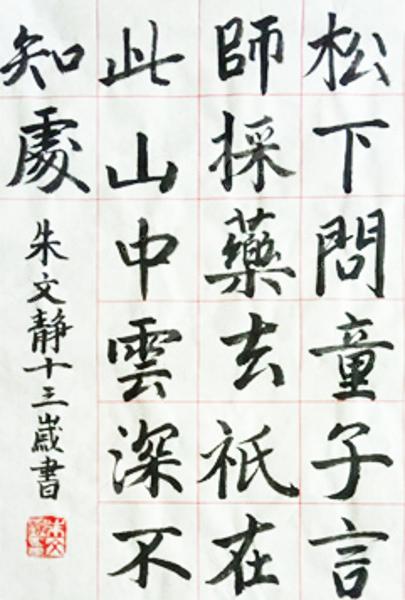 松下問童子言
師採藥去祇在
此山中雲深不
知處
朱文静十三歲書